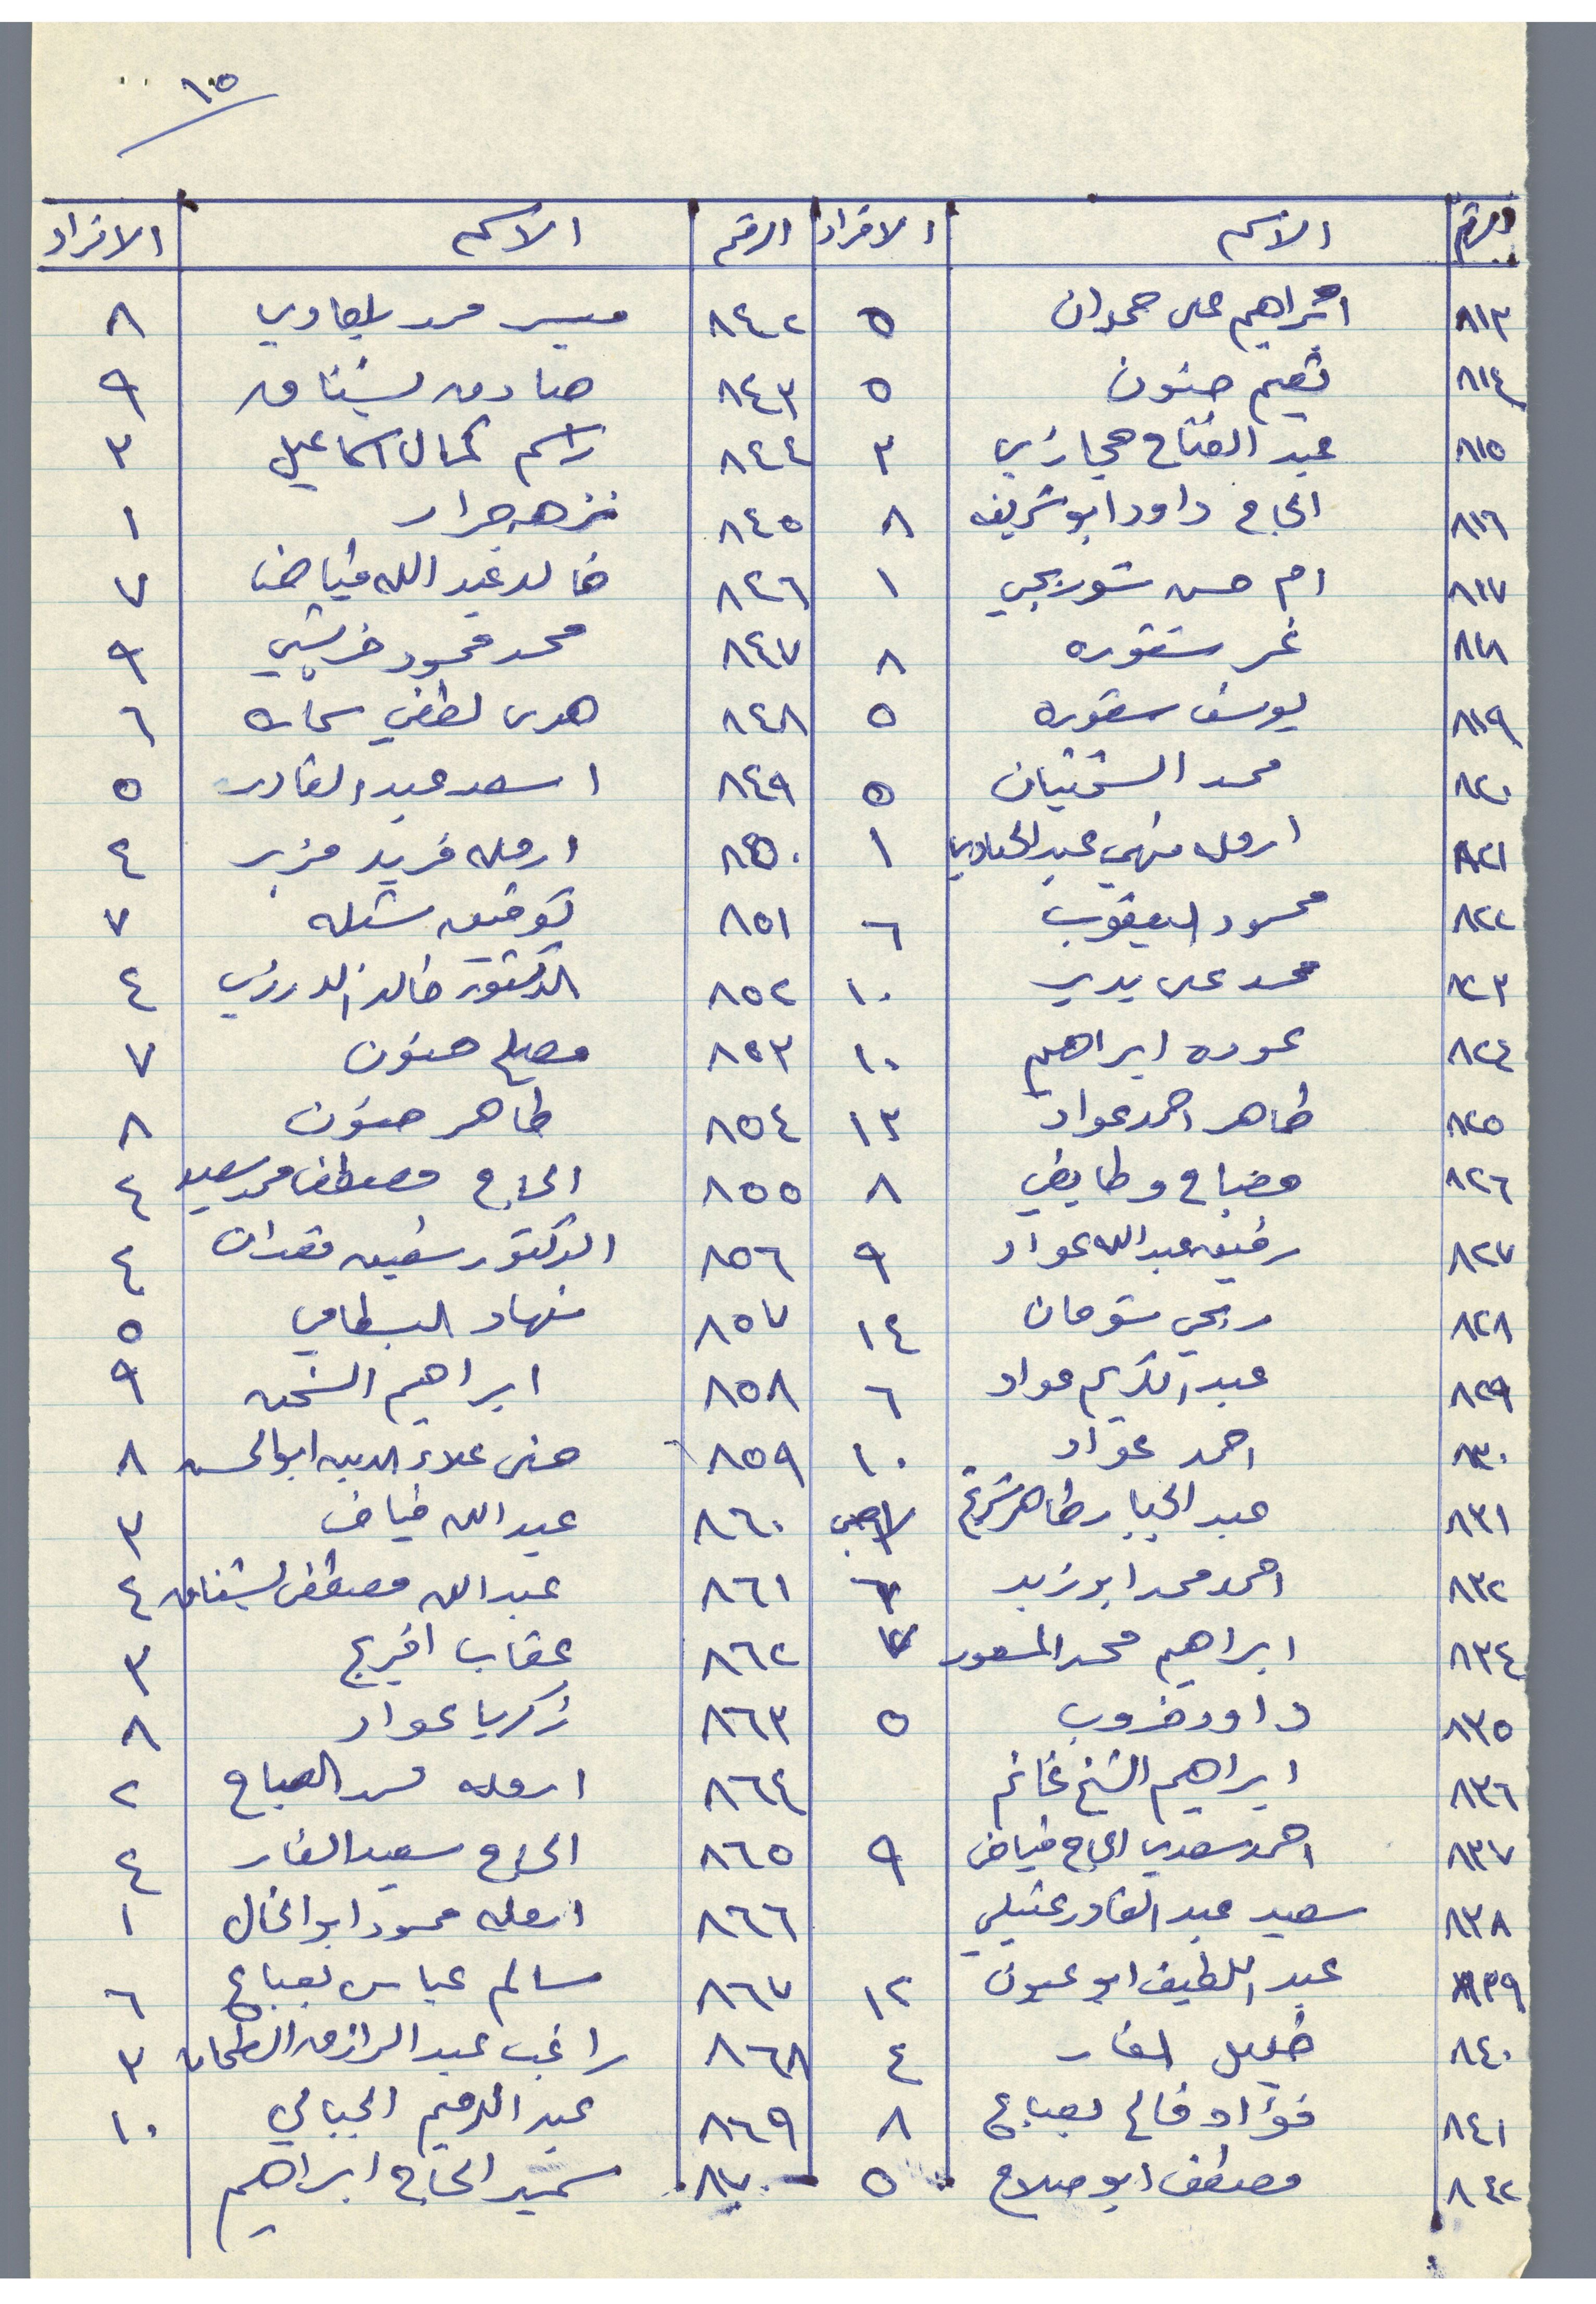 ١٥
الرقم الاسم الافراد الرقم الاسم الافراد
٨١٣ ابراهيم علي حمدان ٥ ٨٤٢ محمد بلعاوي ٨
٨١٤ نعيم حنون ٥ ٨٤٣ صادق لشناق ٩
٨١٥ عبد الفتاح حجازي ٣ ٨٤٤ راسم كمال اسماعيل ٣
٨١٦ الحاج داود ابو شريفه ٨ ٨٤٥ نزهه جرار ١
٨١٧ ام حسن شوربجي ١ ٨٤٦ خالد عبد الله فياض ٧
٨١٨ نمر سقوره ٨ ٨٤٧ محمد محمود خريشي ٩
٨١٩ يوسف سقوره ٥ ٨٤٨ هدى لطفي ٦
٨٢٠ محمد الشختيان ٥ ٨٤٩ اسعد عبد القادر ٥
٨٢١ ارمله ١ ٨٥٠ ارمله فريد مزبر ٤
٨٢٢ محمود اليعقوب ٦ ٨٥١ توفيق شتله ٧
٨٢٣ محمد علي بدير ١٠ ٨٥٢ الدكتور خالد الدرزي ٤
٨٢٤ عوده ابراهيم ١٠ ٨٥٣ مصلح حنون ٧
٨٢٥ طاهر احمد عواد ١٣ ٨٥٤ طاهر حنون ٨
٨٢٦ مصباح وطايفي ٨ ٨٥٥ الحاج مصطفى محمد سعيد ٤
٨٢٧ رفيق عبد الله عواد ٩ ٨٥٦ الدكتور شفيق ٤
٨٢٨ ربحي شومان ١٤ ٨٥٧ نهاد البسطامي ٥
٨٢٩ عبد الكريم عواد ٦ ٨٥٨ ابراهيم الشحن ٩
٨٣٠ احمد عواد ١٠ ٨٥٩ حنى علاء الدين ابو الحسن ٨
٨٣١ عبد الجبار طاهر ٨٦٠ عبد الله فياض ٣
٨٣٢ احمد محمد ابو زيد ٦ ٨٦١ عبد الله مصطفى لشناق ٤
٨٣٤ ابراهيم محمد المسعود ٧ ٨٦٢ عقاب افريج ٣
٨٣٥ داود خروب ٥ ٨٦٣ زكريا عواد ٨
٨٣٦ ابراهيم الشيخ غانم ٨٦٤ ارمله محمد الصباح ٢
٨٣٧ احمد سعدي الحاج فياض ٩ ٨٦٥ الحاج سعيد الفار ٤
٨٣٨ سعيد عبد القادر عتيلي ٨٦٦ ارمله محمود ابو الخال ١
٨٣٩ عبد اللطيف ابو عيون ١٢ ٨٦٧ سالم عباس بعباع ٦
٨٤٠ خليل الفار ٤ ٨٦٨ راغب عبد الرازق الطحان ٣
٨٤١ فؤاد فالح بعباع ٨ ٨٦٩ عبد الرحيم الجبالي ١٠
٨٤٢ مصطفى ابو صلاح ٥ ٨٧٠ سمير الحاج ابراهيم